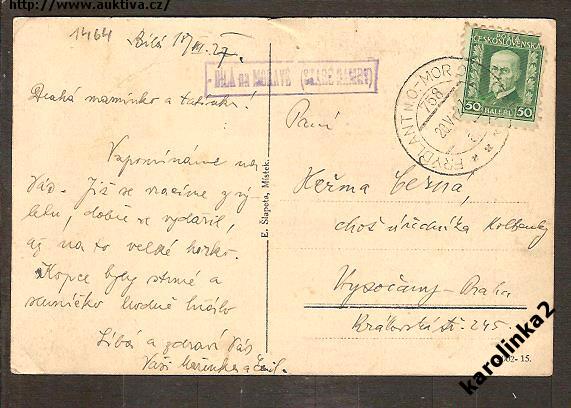 http://www.auktiva.cz/
1464
Bílá 18/VII. 27.
BÍLÁ na MORAVĚ (STARÉ HAMRY)
Drahá maminko a tatínku!
Vzpomínáme na
Vás. Již se vracíme z vý-
letu, dobře se vydařil,
až na to velké horko.
Kopce byly strmé a
sluníčko hodně hřálo
Líbá a zdraví Vás
Vaši Mařenka a Emil.
E. Šlapota, Místek.
FRYDLANT NO-MOR
758
20.VII.27
POŠTA
ČESKOSLOVENSKÁ
50 HALÉŘŮ 50
Paní
Heřma Černá,
choť úředníka Kolbenky
Vysočany - Praha
Královská tř. 245.
02-15.
karolinka2